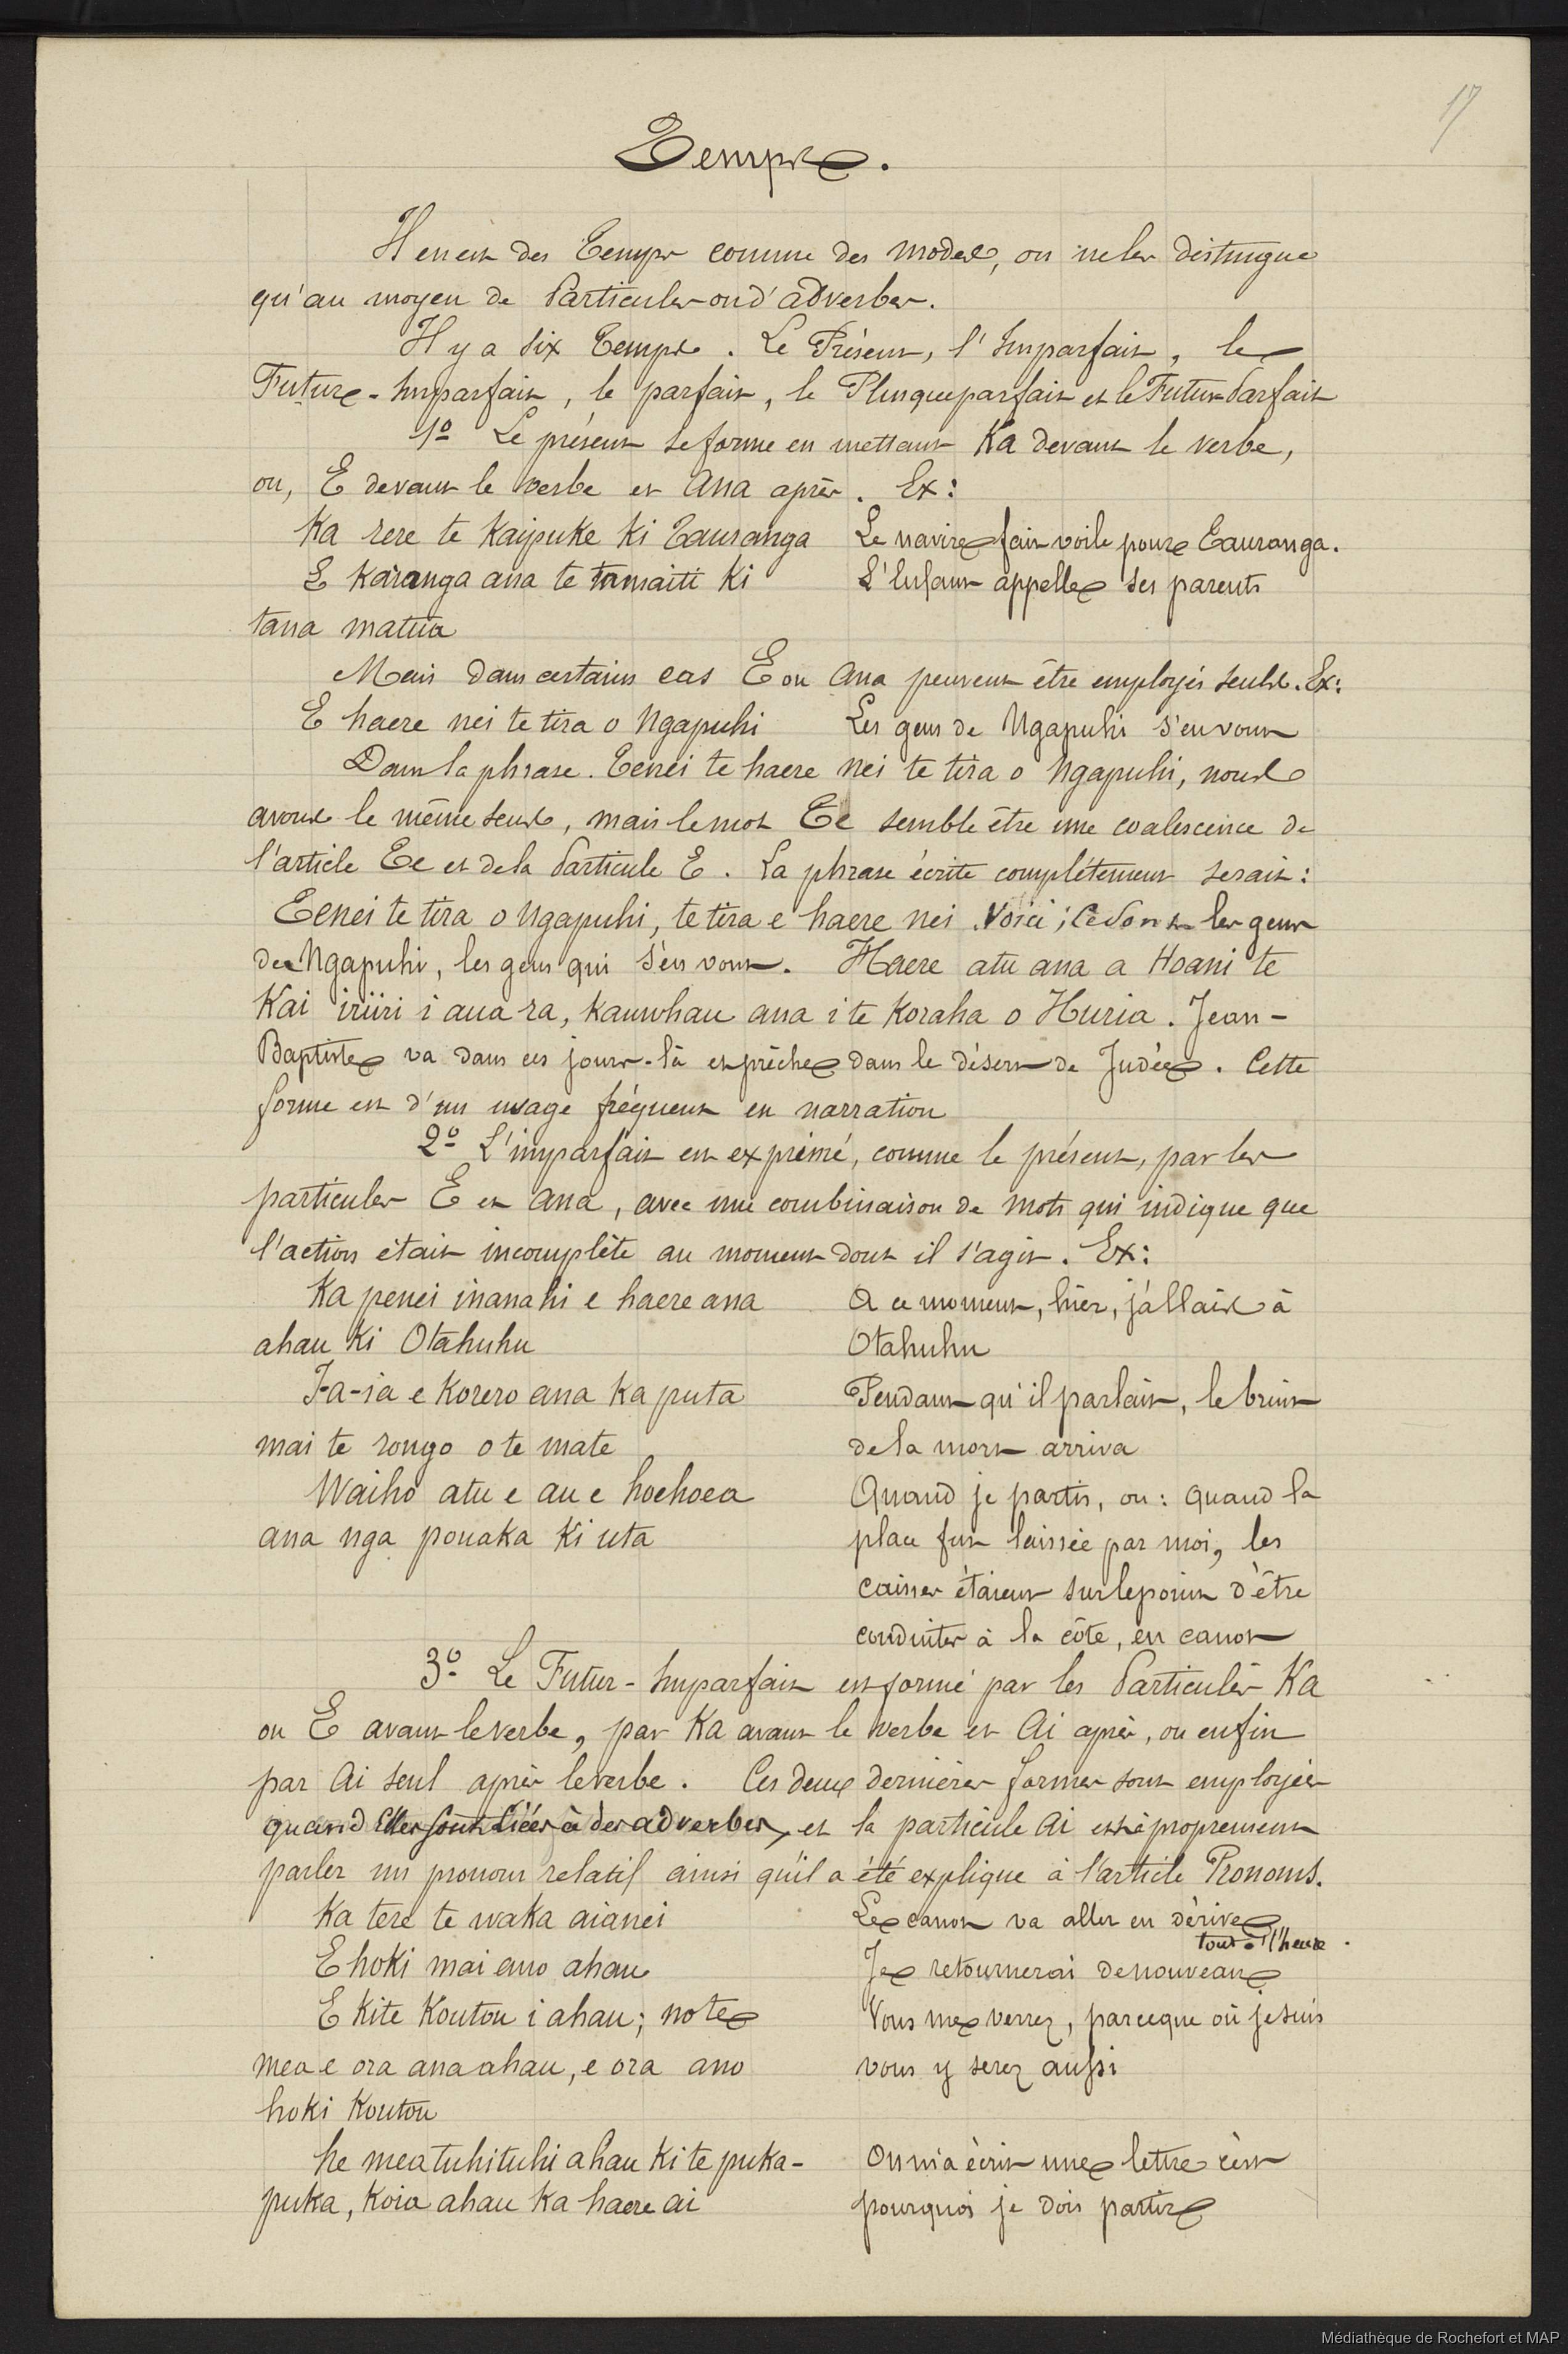 17
Temps.
Il en est des Temps comme des modes, on ne les distingue
qu'au moyen de Particules ou d'adverbes.
Il y a six Temps. Le Présent, l'Imparfait, le
Futur-Imparfait, le parfait, le Plusqueparfait et le Futur Parfait
1º Le présent se forme en mettant Ka devant le verbe,
ou, E devant le verbe et Ana après. Ex:
Ka rere te Kaipuke ki Tauranga Le navire fait voile pour Tauranga.
E Karanga ana te tamaiti ki L'Enfant appelle ses parents
tana matua
Mais dans certains cas E ou Ana peuvent être employés seuls. Ex:
E haere nei te tira o Ngapuhi Les gens de Ngapuhi s'en vont
Dans la phrase. Tenei te haere nei te tira o Ngapuhi, nous
avons le même sens, mais le mot Te semble être une coalescence de
l'article Te et de la Particule E. La phrase écrite complétement serait:
Tenei te tira o Ngapuhi, te tira e haere nei. Voici; Ce sont les gens
de Ngapuhi, les gens qui s'en vont. Haere atu ana a Hoani te
Kai iriiri i aua ra, kauwhau ana i te Koraha o Huria. Jean-
Baptiste va dans ces jours-là et prêche dans le désert de Judée. Cette
forme est d'un usage fréquent en narration
2º L'imparfait est exprimé, comme le présent, par les
particules E et Ana, avec une combinaison de mots qui indique que
l'action était incomplète au moment dont il s'agit. Ex:
Ka penei inanahi e haere ana A ce moment, hier, j'allais à
ahau Ki Otahuhu Otahuhu
I-a-ia e Korero ana ka puta Pendant qu'il parlait, le bruit
mai te rongo o te mate de la mort arriva
Waiho atu e au e hoehoea Quand je partis, ou: quand la
ana nga pouaka Ki uta place fut laissée par moi, les
caisses étaient sur le point d'être
conduites à la côte, en canot
3º Le Futur-Imparfait est formé par les Particules Ka
ou E avant le verbe, par Ka avant le verbe et Ai après, ou enfin
par Ai seul après le verbe. Ces deux dernières formes sont employées
quand Elles sont liées à des adverbes, et la particule Ai est à proprement
parler un pronom relatif ainsi qu'il a été explique à l'article Pronoms.
Ka tere te waka aianei Le canot va aller en dérive
tout à l'heure.
E hoki mai ano ahau Je retournerai de nouveau
E Kite Koutou i ahau; no te Vous me verrez, parceque où je suis
mea e ora ana ahau, e ora ano vous y serez aussi
hoki Koutou
he mea tuhituhi ahau ki te puka- On m'a écrit une lettre c'est
puka, Koia ahau Ka haere ai pourquoi je dois partir
Médiathèque de Rochefort et MAP